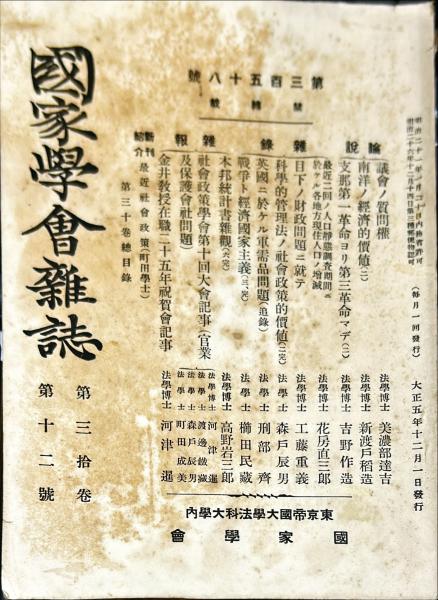 明治二十六年十二月十四日第三種郵便物認可
(每月一回發行)
大正五年十二月一日發行
第三百五十八號
禁轉載
論說
議會ノ質問權 法學博士 美濃部達吉
南洋ノ經濟的價値(二) 法學博士 新渡戶稻造
支那第一革命ヨリ第三革命マデ(二) 法學博士 吉野作造
雜錄
最近二回ノ人口靜態調査期間ニ
於ケル各地方現住人口ノ增減 法學博士 花房直三郎
目下ノ財政問題ニ就テ 法學博士 工藤重義
科學的管理法ノ社會政策的價値(二、完) 法學士 森戶辰男
英國ニ於ケル軍需品問題(追錄) 法學士 刑部齊
戰爭ト經濟國家主義(三、完) 法學士 櫛田民藏
本邦統計書雜觀(六、完) 法學博士 高野岩三郎
雜報
社會政策學會第十回大會記事(官業
及保護會社問題) 法學博士 河津暹
法學士 渡邊鐵藏
法學士 森戶辰男
法學士 町田成美
金井敎授在職二十五年祝賀會記事 法學博士 河津暹
新刊
紹介
最近社會政策(町田學士)
第三十卷總目錄
東京帝國大學法科大學內
國家學會
國家學會雜誌
第三拾卷
第十二號